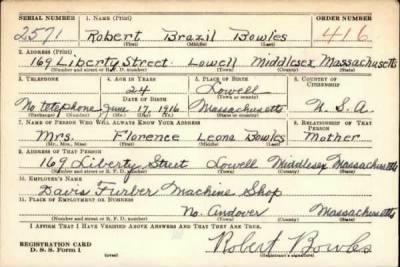 SERIAL NUMBER 1. NAME (Print) ORDER NUMBER
2571 Robert Brazil Bowles 416
(First) (Middle) (Last)
2. ADDRESS (Print)
169 Liberty Street Lowell Middlesex Massachusetts
(Number and street or R. F. D. number) (Town) (County) (State)
3. TELEPHONE 4. AGE IN YEARS 5. PLACE OF BIRTH 6. COUNTRY OF CITIZENSHIP
24 Lowell
DATE OF BIRTH (Town or county)
No telephone June 17, 1916 Massachusetts U.S.A.
(Exchange) (Number) (Mo.) (Day) (Yr.) (State or country)
7. NAME OF PERSON WHO WILL ALWAYS KNOW YOUR ADDRESS 8. RELATIONSHIP OF THAT PERSON
Mrs. Florence Leona Bowles Mother
(Mr., Mrs., Miss) (First) (Middle) (Last)
9. ADDRESS OF THAT PERSON
169 Liberty Street Lowell Middlesex Massachusetts
(Number and street or R. F. D. number) (Town) (County) (State)
10. EMPLOYER'S NAME
Davis Furber Machine Shop
11. PLACE OF EMPLOYMENT OR BUSINESS
No. Andover Massachusetts
(Number and street or R. F. D. number) (Town) (County) (State)
I AFFIRM THAT I HAVE VERIFIED ABOVE ANSWERS AND THAT THEY ARE TRUE.
REGISTRATION CARD Robert Bowles
D. S. S. Form 1 (over) (Registrant's signature)